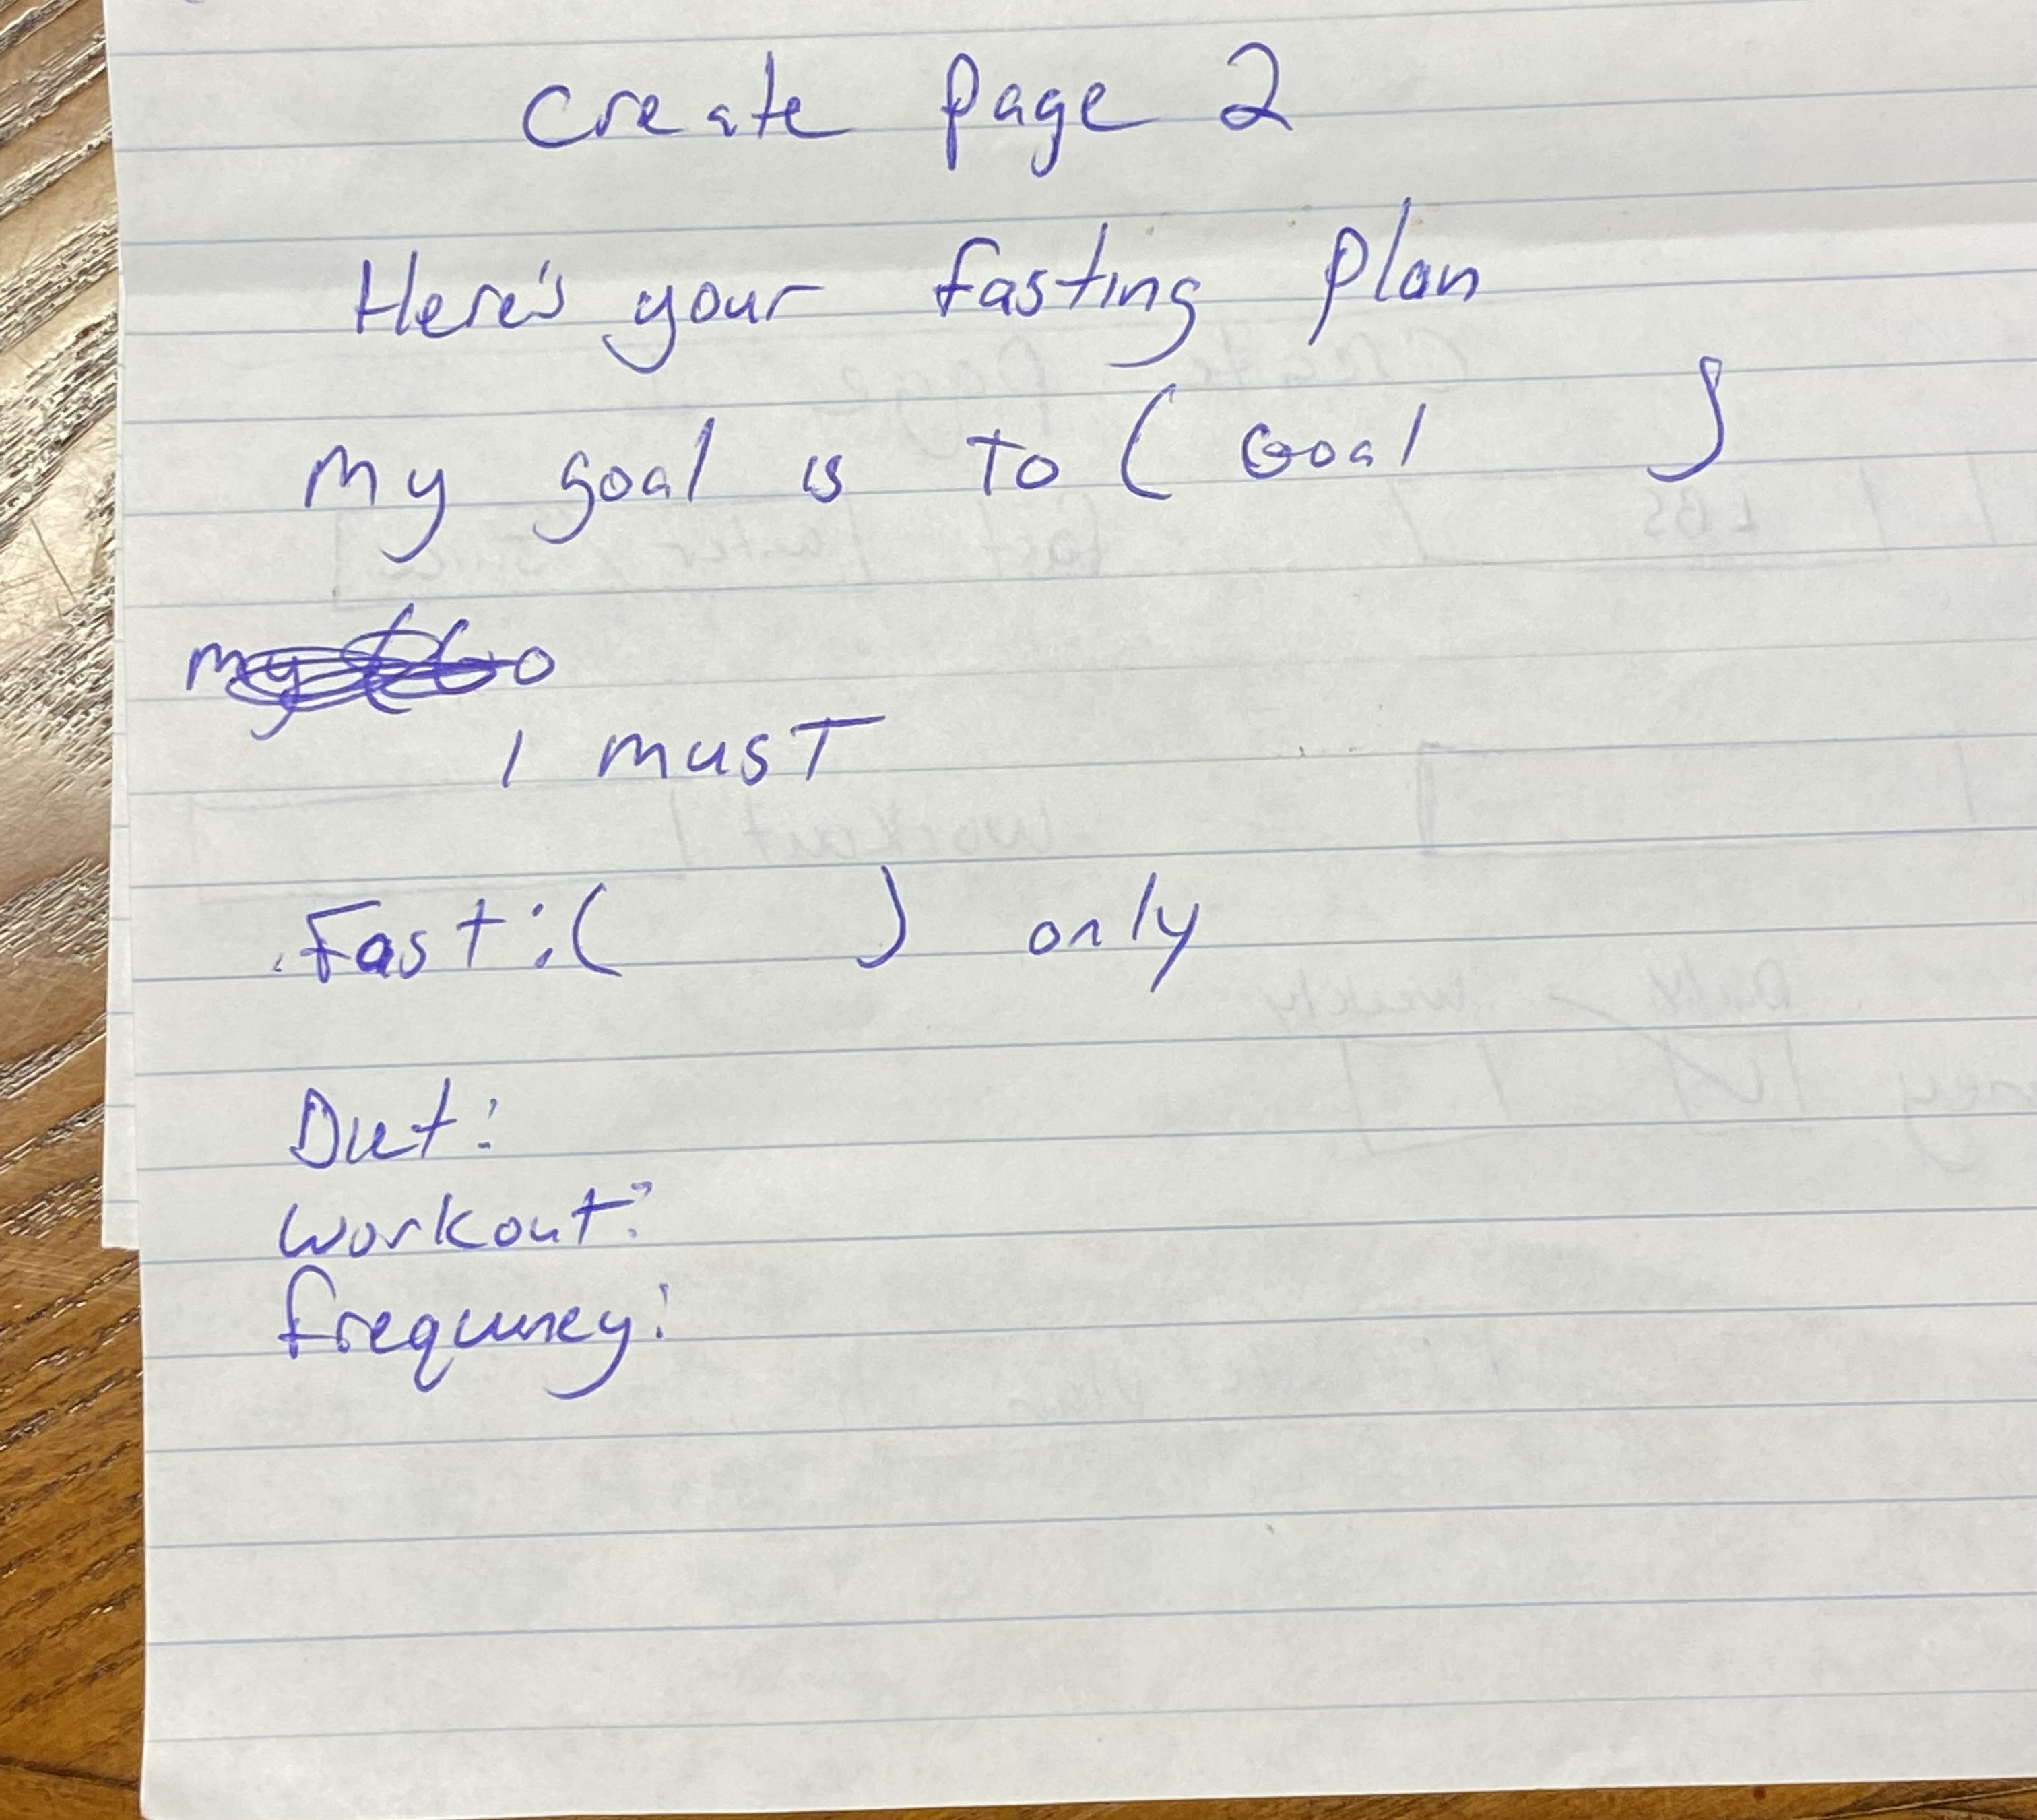 Create Page 2
Here's your fasting plan
My goal is to ( Goal )
I must
Fast: ( ) only
Diet:
Workout:
Frequency: